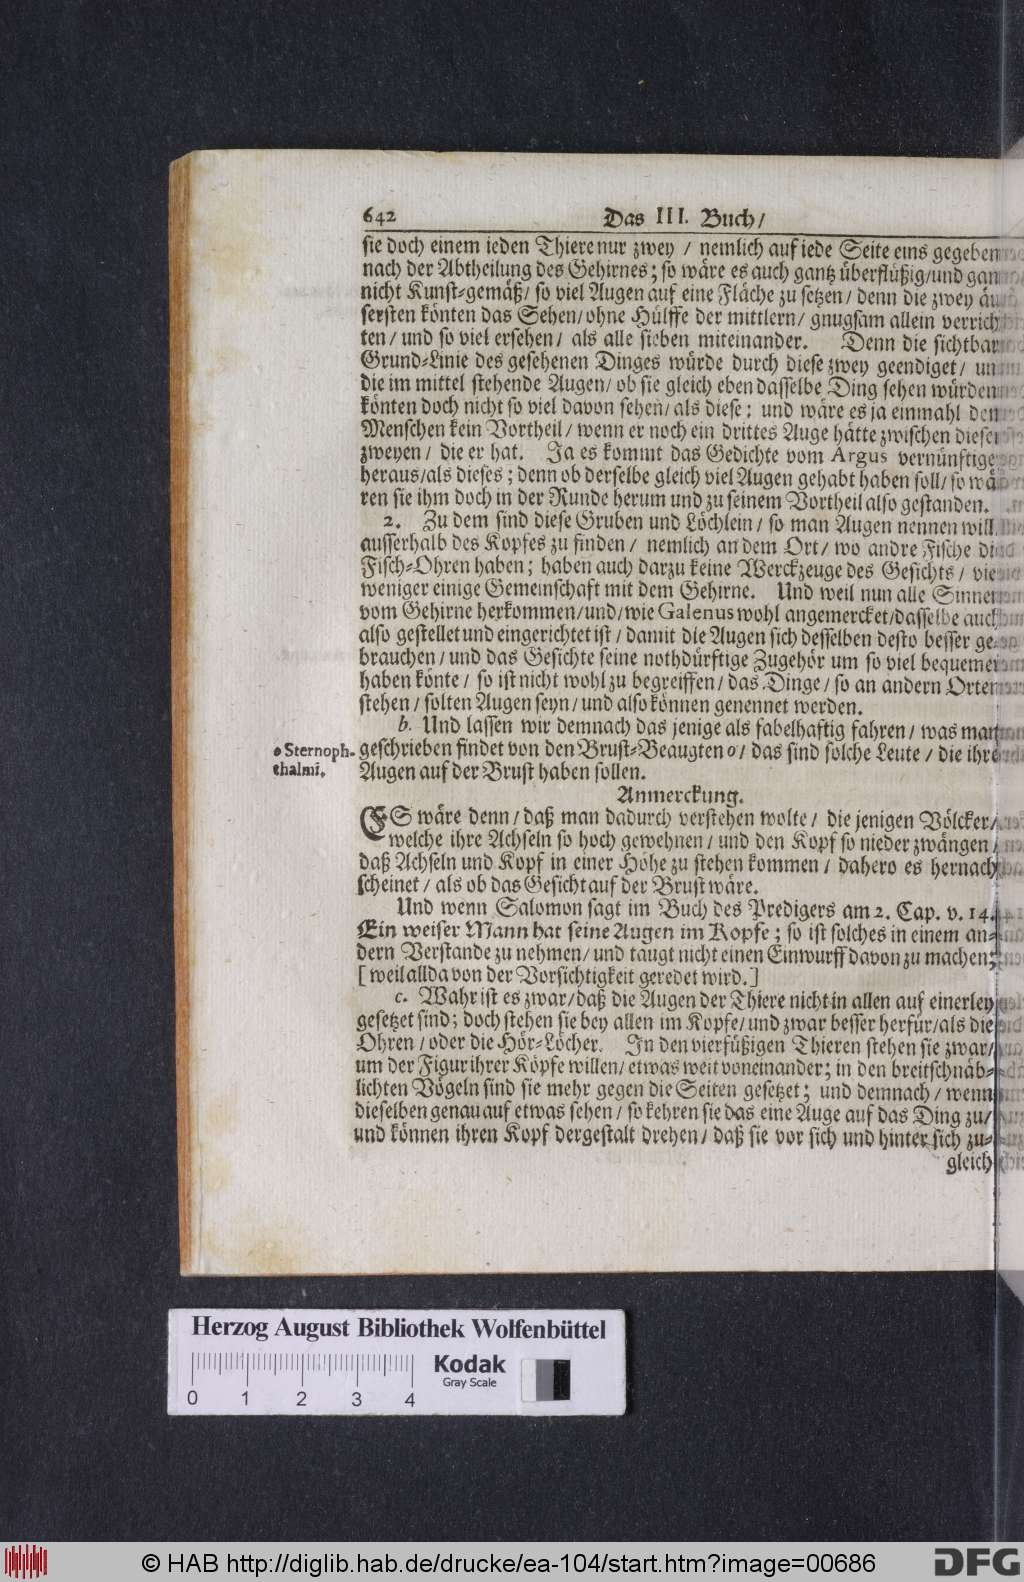 642 Das III. Buch/
sie doch einem ieden Thiere nur zwey / nemlich auf iede Seite eins gegeben
nach der Abtheilung des Gehirnes; so wäre es auch gantz überflüßig/und
nicht Kunst-gemäß/ so viel Augen auf eine Fläche zu setzen/ denn die zwey
sersten könten das Sehen/ohne Hülffe der mittlern/ gnugsam allein verrich
ten/ und so viel ersehen/ als alle sieben miteinander. Denn die sichtbar
Grund-Linie des gesehenen Dinges würde durch diese zwey geendiget/
die im mittel stehende Augen/ ob sie gleich eben dasselbe Ding sehen würden
könten doch nicht so viel davon sehen/als diese: und wäre es ja einmahl den
Menschen kein Vortheil/ wenn er noch ein drittes Auge hätte zwischen diesen
zweyen/ die er hat. Ja es kommt das Gedichte vom Argus vernünftige
heraus/als dieses; denn ob derselbe gleich viel Augen gehabt haben soll/ so wä
ren sie ihm doch in der Runde herum und zu seinem Vortheil also gestanden.
2. Zu dem sind diese Gruben und Löchlein/ so man Augen nennen will
ausserhalb des Kopfes zu finden/ nemlich an dem Ort/ wo andre Fische die
Fisch-Ohren haben; haben auch darzu keine Werckzeuge des Gesichts/ vie
weniger einige Gemeinschaft mit dem Gehirne. Und weil nun alle Sinnen
vom Gehirne herkommen/und/wie Galenus wohl angemercket/dasselbe auch
also gestellet und eingerichtet ist/ damit die Augen sich desselben desto besser ge-
brauchen/und das Gesichte seine nothdürftige Zugehör um so viel bequemer
haben könte/ so ist nicht wohl zu begreiffen/das Dinge/ so an andern Orten
stehen/ solten Augen seyn/und also können genennet werden.
b. Und lassen wir demnach das jenige als fabelhaftig fahren/ was man
geschrieben findet von den Brust-Beaugten o/ das sind solche Leute/ die ihre
Augen auf der Brust haben sollen.
o Sternoph-
thalmi.
Anmerckung.
ES wäre denn/ daß man dadurch verstehen wolte/ die jenigen Völcker/
welche ihre Achseln so hoch gewehnen/ und den Kopf so nieder zwängen/
daß Achseln und Kopf in einer Höhe zu stehen kommen/ dahero es hernach
scheinet/ als ob das Gesicht auf der Brust wäre.
Und wenn Salomon sagt im Buch des Predigers am 2. Cap. v. 14.
Ein weiser Mann hat seine Augen im Kopfe; so ist solches in einem an-
dern Verstande zu nehmen/ und taugt nicht einen Einwurff davon zu machen;
[weil allda von der Vorsichtigkeit geredet wird.]
c. Wahr ist es zwar/daß die Augen der Thiere nicht in allen auf einerley
gesetzet sind; doch stehen sie bey allen im Kopfe/und zwar besser herfür/als die
Ohren/oder die Hör-Löcher. In den vierfüßigen Thieren stehen sie zwar/
um der Figur ihrer Köpfe willen/ etwas weit voneinander; in den breitschnäb-
lichten Vögeln sind sie mehr gegen die Seiten gesetzet; und demnach/ wenn
dieselben genau auf etwas sehen/ so kehren sie das eine Auge auf das Ding zu/
und können ihren Kopf dergestalt drehen/ daß sie vor sich und hinter sich zu-
gleich
Herzog August Bibliothek Wolfenbüttel
Kodak
Gray Scale
0 1 2 3 4
© HAB http://diglib.hab.de/drucke/ea-104/start.htm?image=00686
DFG